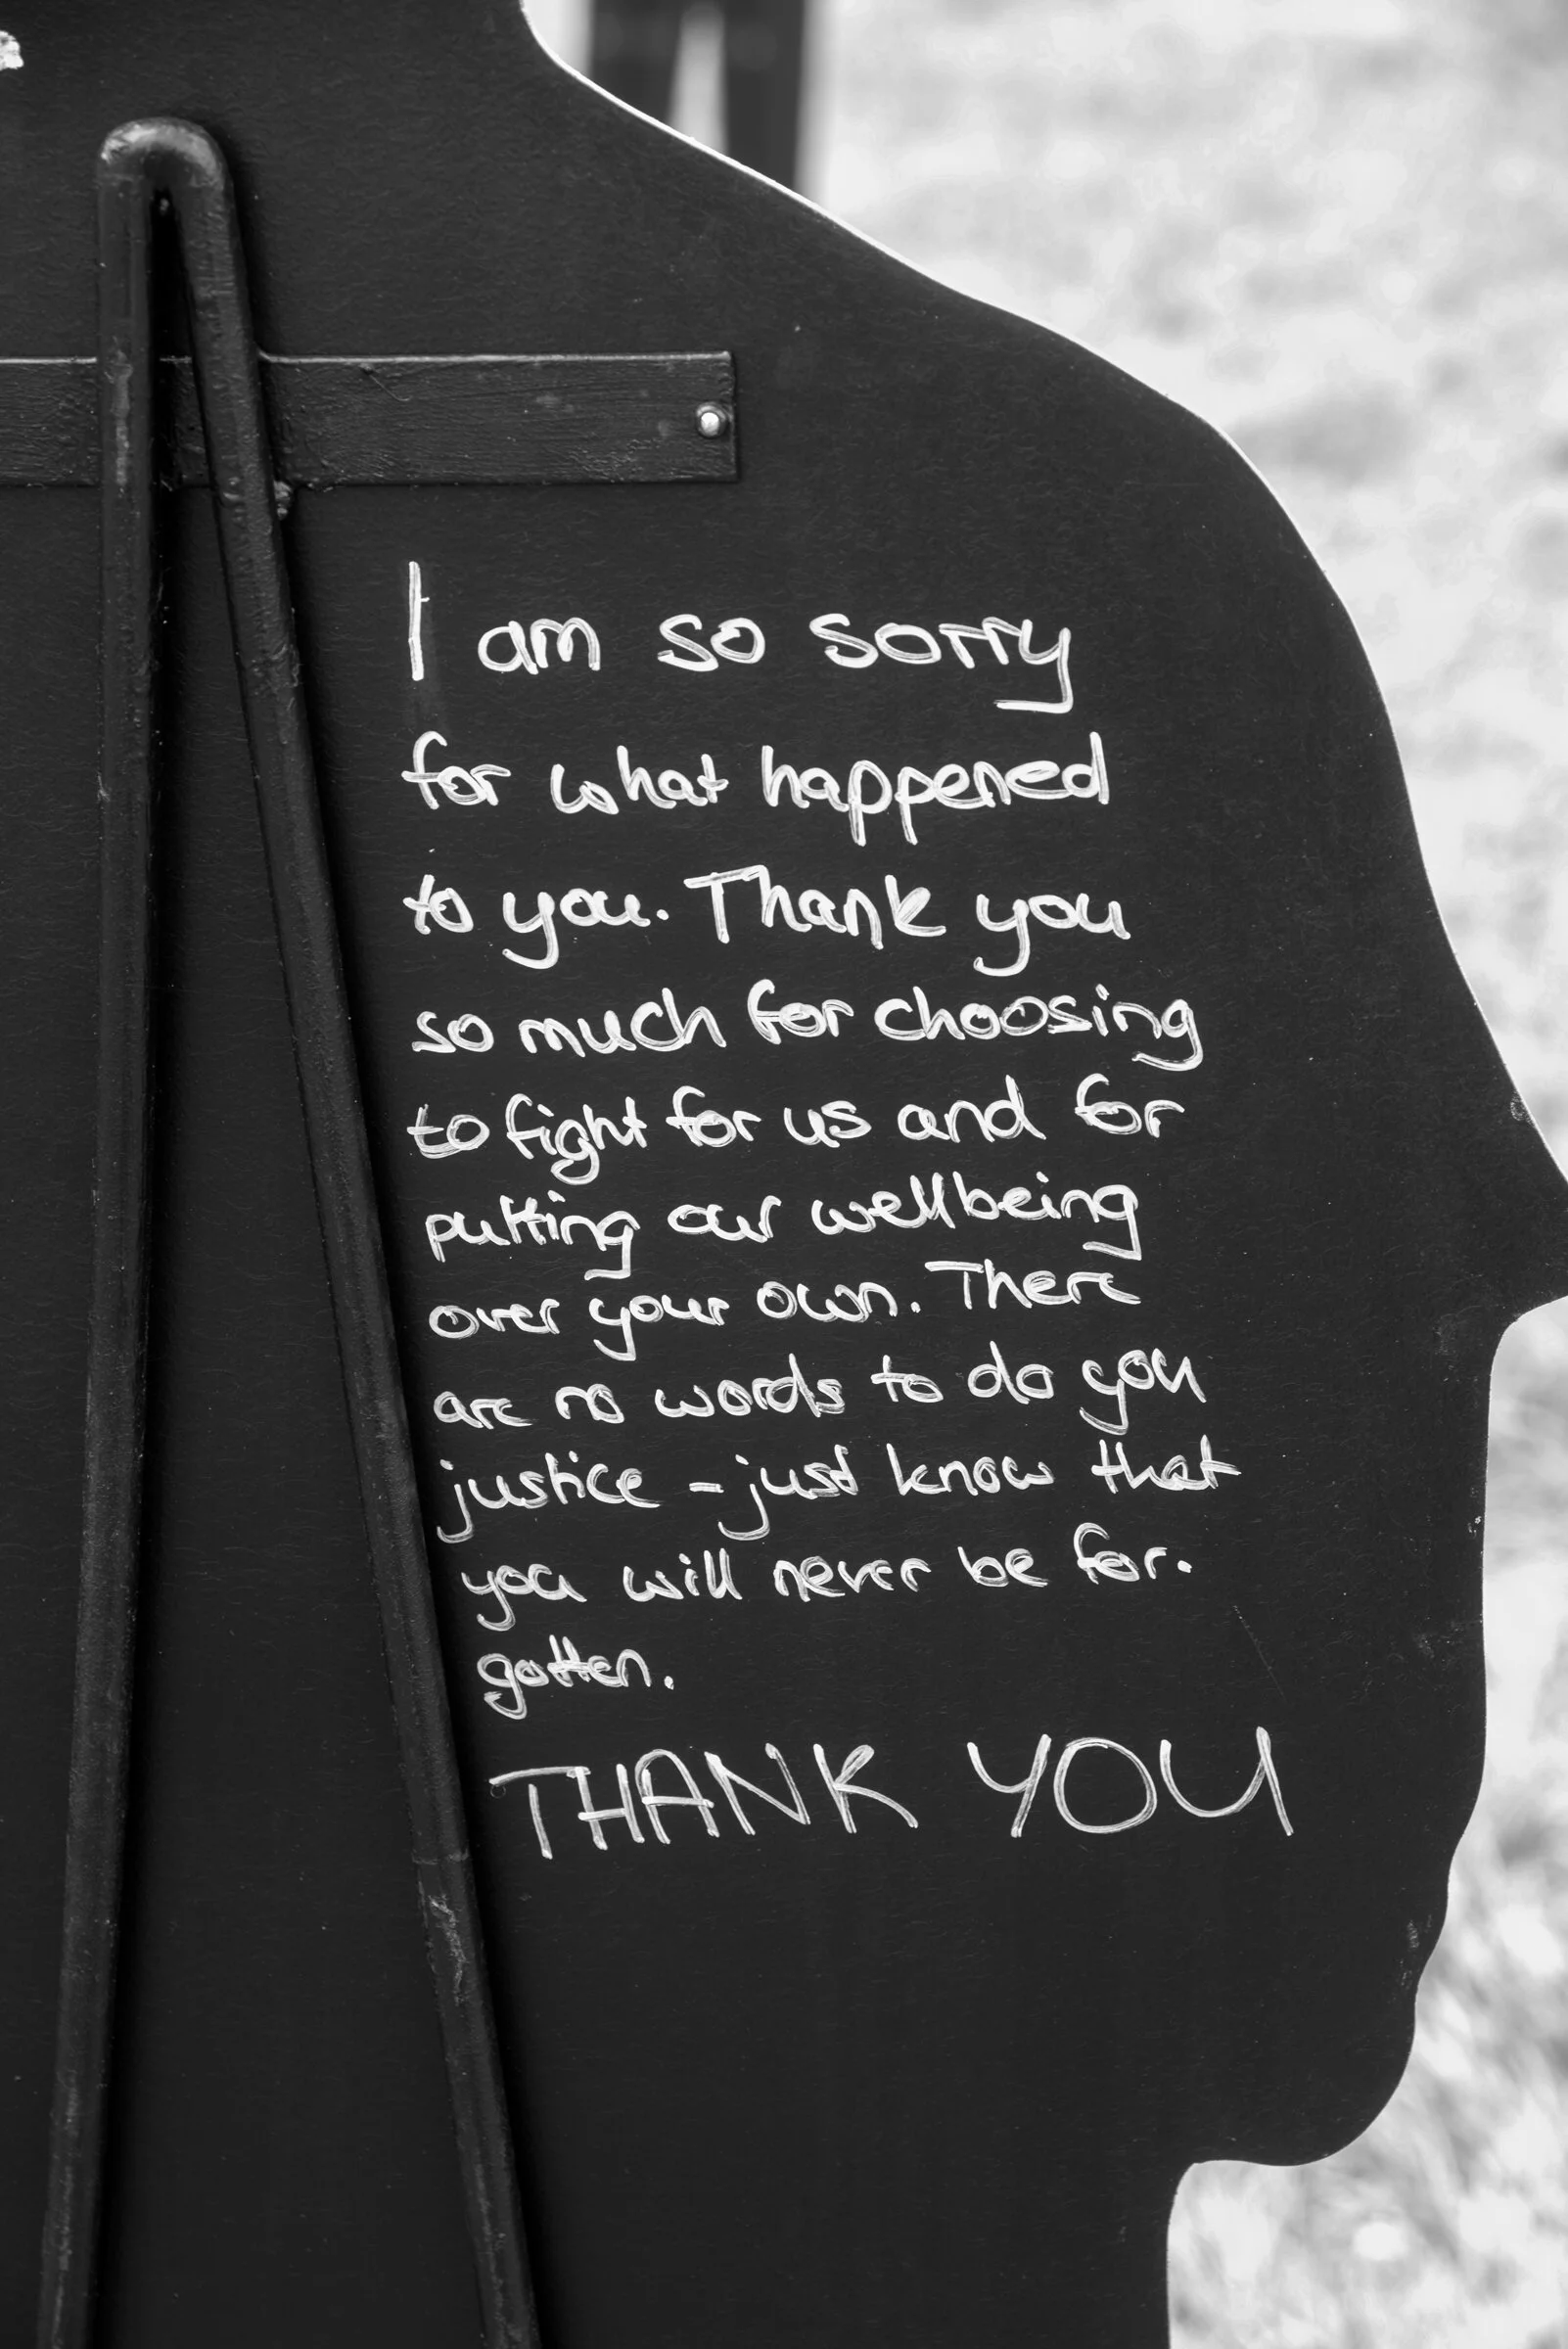 I am so sorry
for what happened
to you. Thank you
so much for choosing
to fight for us and for
putting our wellbeing
over your own. There
are no words to do you
justice - just know that
you will never be for.
gotten.
THANK YOU